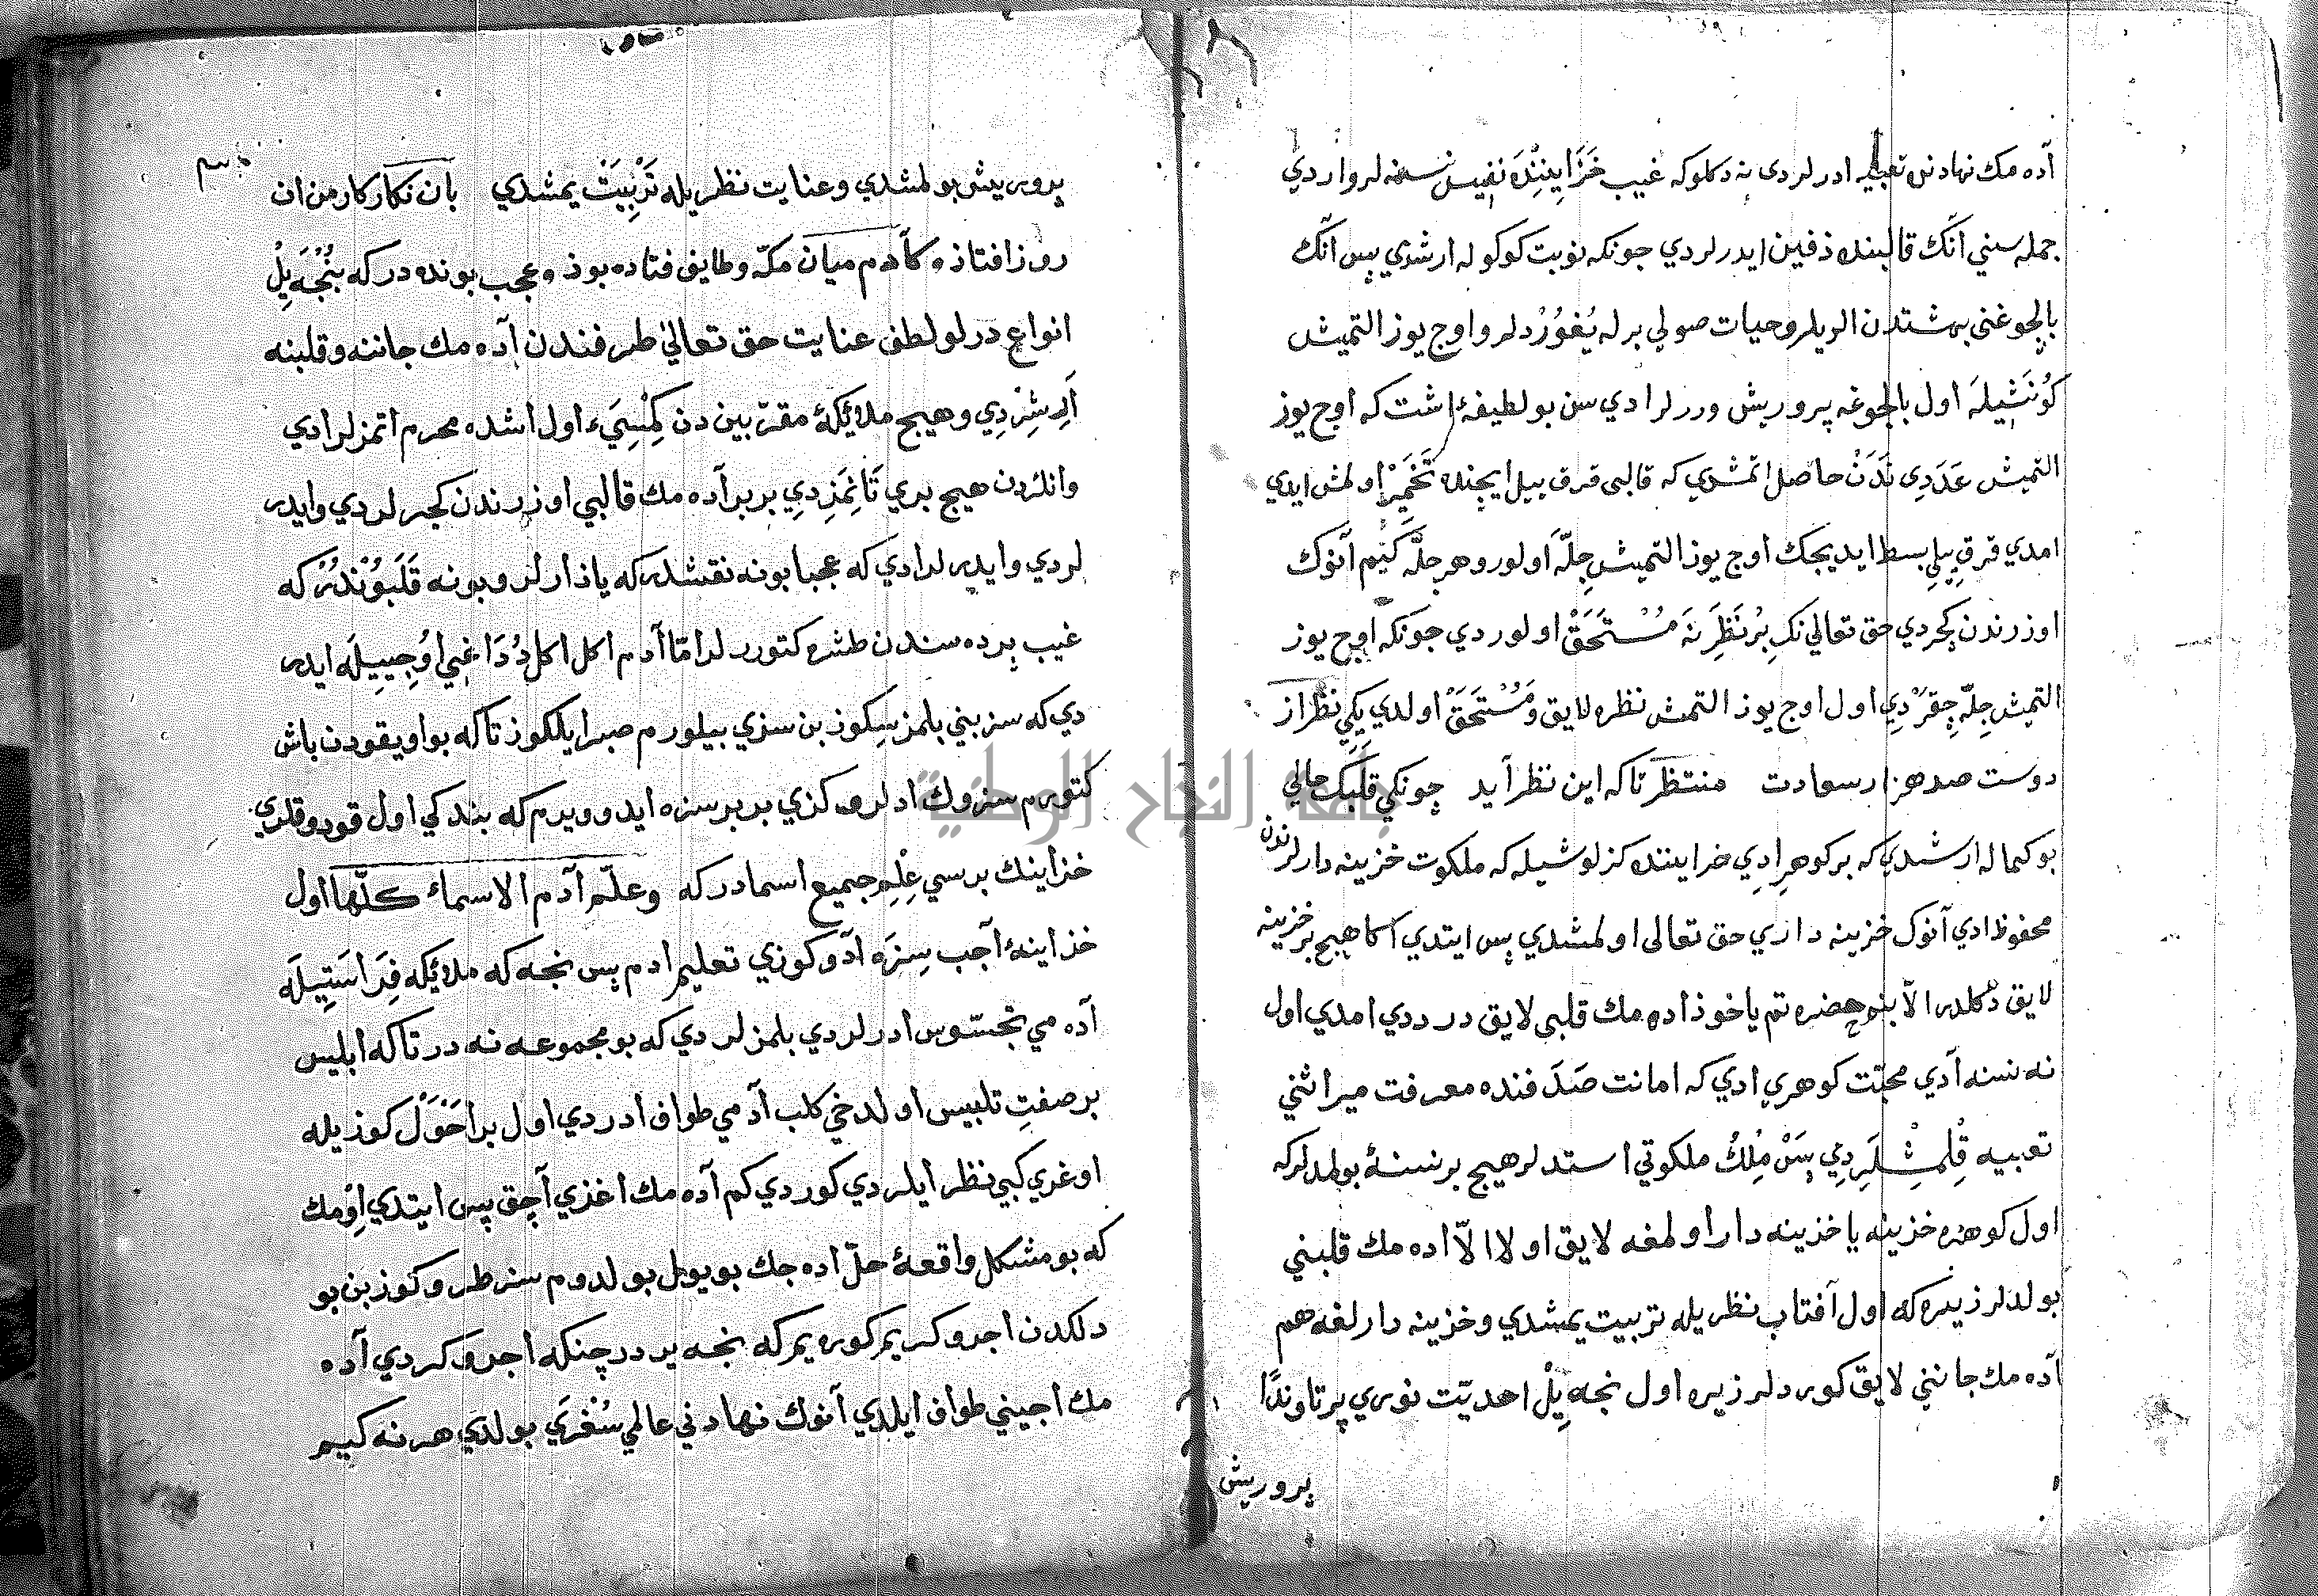 آدەمك نهادنده تعبیه ادرلردی نه دكلو كه غیب خَزَايِنِنْدَه نفیس نسنه لر واردي
جمله سني آنك قالبنده دفین ايدرلردي چونكه نوبت كوكوله ارشدي پس آنك
بالچوغني بهشتدن الديلر وحيات صولي برله يُغُوُرْدلر واوج يوز التمیش
كُونَشِيلَه اول بالچوغه پرورش وررلر ادي سن بو لطيفهٔ اشت كه اوج يوز
التمیش عَدَدِی نَدَنْ حاصل اتمشدي كه قالبی قرق ییل ایچنده تَخْمِیرْ اولمش ایدي
امدي قرق ییلی بسط ایدیجك اوج یوز التمیش چلّه اولور وهر چلّه كیم آنوك
اوزرندن كچردي حق تعالي نك بِرْ نَظَرِنَه مُسْتَحَقْ اولوردي چونكه اوج یوز
التمش چلّه چِقَرْدِي اول اوج یوز التمش نظره لایق ومُسْتَحَقْ اولدي یكي نظر از
دوست صد هزار سعادت منتظر تاكه این نظر آید چونكي قلبك حالي
بو كماله ارشدي كه بر كوهر ادي خزاينده كزلو شیله كه ملكوت خزینه دارلرندن
محفوظ ادي آنوك خزینه داري حق تعالی اولمشدي پس ایتدي اكا هیچ بر خزینه
لایق دكلدر الّا بنم حضرتم یاخوذ ادەمك قلبی لایق درردي امدي اول
نه نسنه ادي محبّت كوهري ادي كه امانت صَدَفنده معرفت میراثني
تعبیه قِلمِشْلَردِي پَسْ مُلْكُ ملكوتي استدلر هیچ بر نسنهٔ بولمدلركه
اول كوهره خزینه یا خزینه دار اولمغه لایق اولا الّا ادەمك قلبني
بولدلر زیره كه اول آفتاب نظریله تربیت یمشدي وخزینه دارلغه هم
آدەمك جانني لایق كوردلر زیره اول نجه یِلْ احدیّت نوري پرتاوندا
پرورش
پرورش بولمشدي وعنایت نظریله تَرْبِیَتْ یمشدي بان نكار كار من ان
روز افتاذه كآدم میان مكّه وطایف فتاده بوذ وعجب بونده در كه بُنْجَه یِلْ
انواع درلو لطف عنایت حق تعالیٰ طرفندن آدەمك جاننه وقلبنه
اَرِشِرْدِي وهیچ ملائكهٔ مقرّبین دن كِمْسَيء اول اشده محرم اتمزلر ادي
وانلردن هیچ بري تَانِمَزِدِي بربر آدەمك قالبي اوزرندن كچرلردي وایدر
لردي وایدرلر ادي كه عجبا بو نه نقشدر كه یاذارلر وبو نه قَلَبُونْدُرْ كه
غیب پرده سندن طشره كتوررلر امّا آدم اكل اكل دُدَاغی اُوجِیِیلَه ایدر
دي كه سز بني بلمزسِكوز بن سزي بیلورم صبر ایلكوز تاكه بو اویقودن باش
كتورم سزوك ادلروكزي بربر سزه ایدوویرم كه بندكي اول قودوقلري
خزاینك برسي عِلْمِ جمیع اسمادر كه وعلّم آدم الاسماء كلّها اول
خزاینهٔ آجب سِزَه آدوكوزي تعلیم ادم پس نجه كه ملائیكه فِرَاسَتِیلَه
آدەمي تجسّوس ادرلردي بلمزلردي كه بو مجموعه نه در تاكه ابلیس
بر صفتِ تلبیس اولدخي كلب آدمي طواف ادردي اول بر اَحْوَلْ كوزیله
اوغري كبي نظر ایلردي كوردي كم آدەمك اغزي آچق پس ایتدي اِوْمك
كه بو مشكل واقعهٔ حلّ ادەجك بو یوبل بولدوم سز طروكوز بن بو
دلكدن اجرو كریم كورەیم كه نجه یردر چنكه اجرو كردي آدە
مك اجیني طواف ایلدي آنوك نهادني عالي سُغْرَي بولدي هر نه كیم